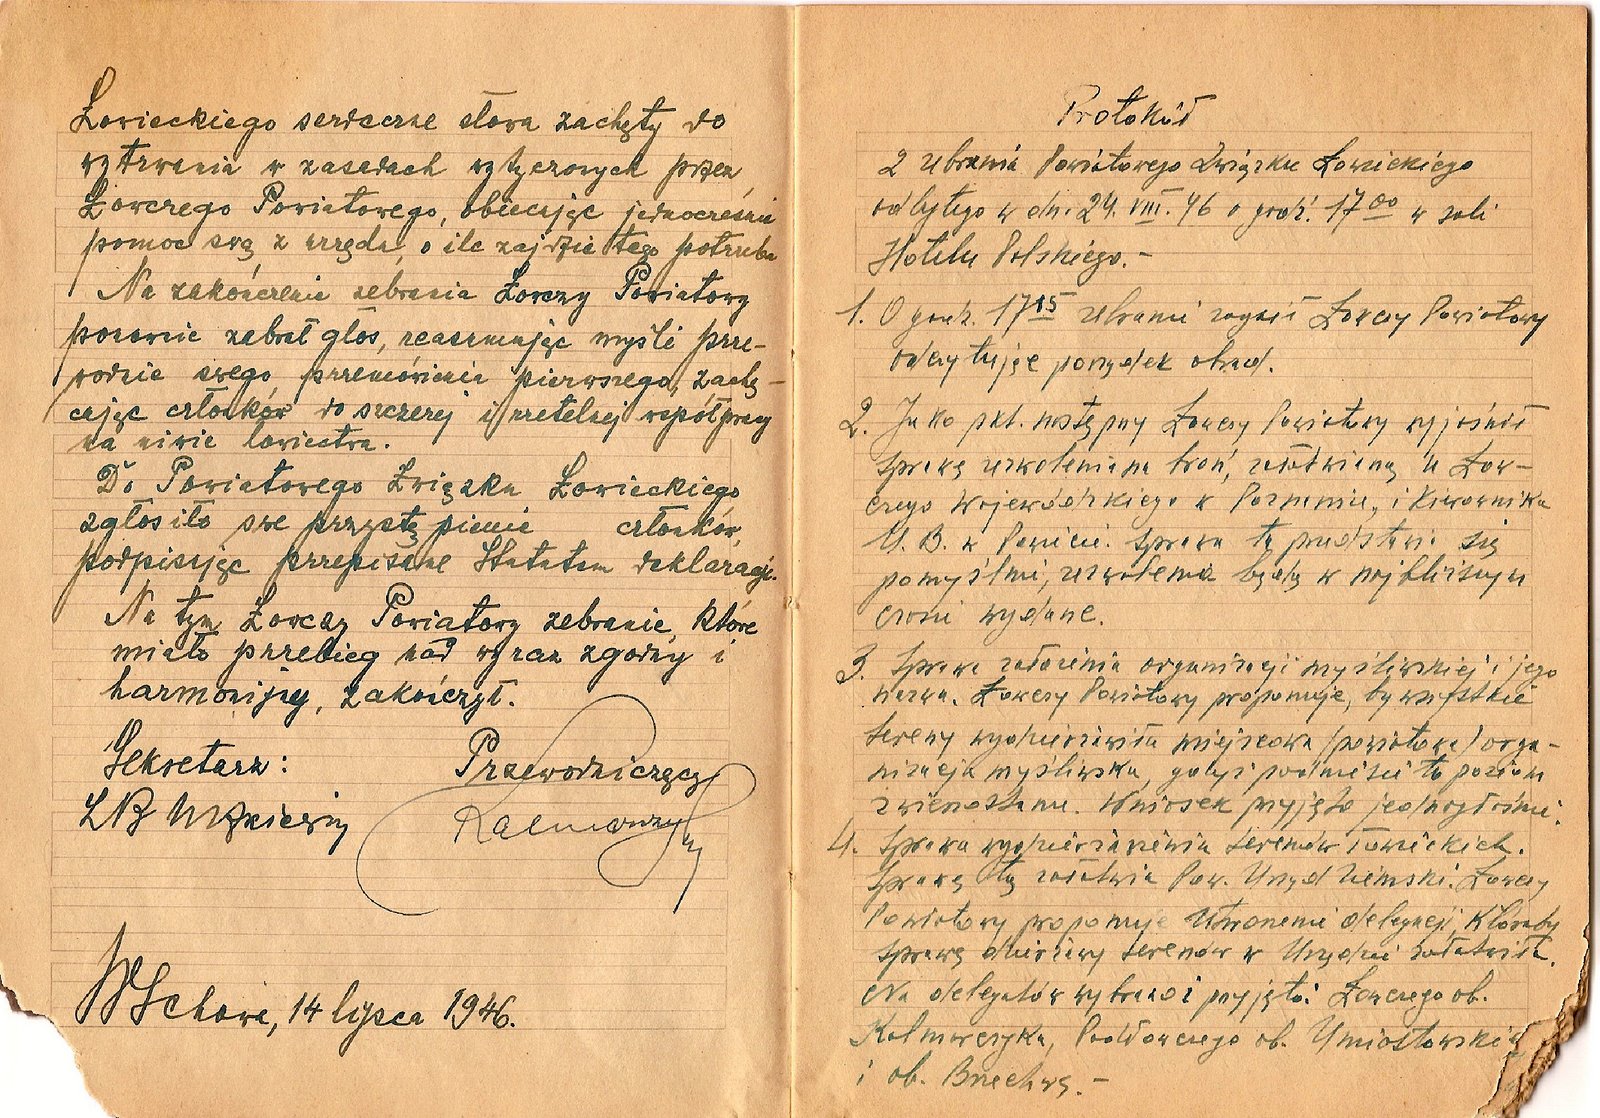 Łowieckiego serdeczne słowa zachęty do
wytrwania w zasadach wytyczonych przez
Łowczego Powiatowego, obiecując jednocześnie
pomoc swą z urzędu, o ile zajdzie tego potrzeba
Na zakończenie zebrania Łowczy Powiatowy
ponownie zebrał głos, reasumując myśli prze-
wodnie swego przemówienia pierwszego, zachę-
cając członków do szczerej i rzetelnej współpracy
na niwie łowiectwa.
Do Powiatowego Związku Łowieckiego
zgłosiło swe przystąpienie członków,
podpisując przepisane Statutem deklaracje.
Na tym Łowczy Powiatowy zebranie, które
miało przebieg nad wyraz zgodny i
harmonijny, zakończył.
Sekretarz: Przewodniczący
Kaczmarczyk
Wschowa, 14 lipca 1946.
Protokół
2 zebrania Powiatowego Związku Łowieckiego
odbytego w dn. 24. VIII. 46 o godz. 17 00 w sali
Hotelu Polskiego.-
1. O godz. 17 15 zebranie zagaił Łowczy Powiatowy
odczytując porządek obrad.
2. Jako pkt. następny Łowczy Powiatowy wyjaśnił
sprawę zezwolenia na broń, załatwianą u Łow-
czego Wojewódzkiego w Poznaniu, i Kierownika
U. B. w Powiecie. Sprawa ta przedstawia się
pomyślnie, zezwolenia będą w najbliższym
czasie wydane.
3. Sprawa założenia organizacji myśliwskiej i jego
nazwa. Łowczy Powiatowy proponuje, by wszystkie
tereny wydzierżawiła miejscowa /powiatowa/ orga-
nizacja myśliwska, gdyż podniesie to poziom
zwierzostanu. Wniosek przyjęto jednogłośnie.
4. Sprawa wydzierżawienia terenów łowieckich.
Sprawę tą załatwia Pow. Urząd Ziemski. Łowczy
Powiatowy proponuje utworzenie delegacji, któraby
sprawę dzierżawy terenów w Urzędzie załatwiła.
Na delegatów wybrano i przyjęto: Łowczego ob.
Kaczmarczyka, Podłowczego ob. Umiastowskiego
i ob. Brzechwę.-